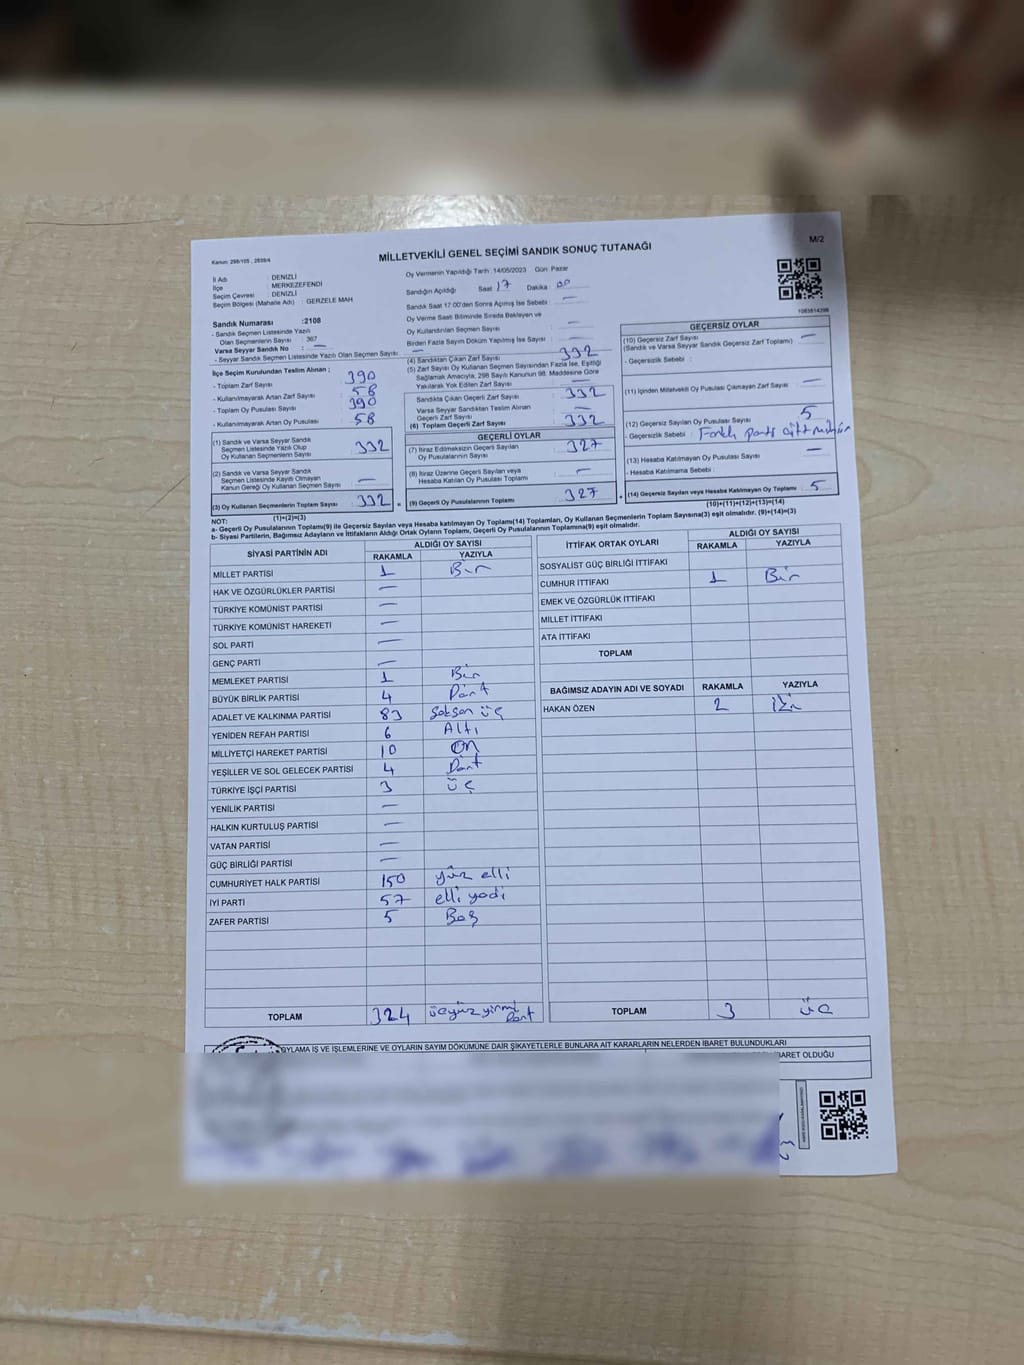 MİLLETVEKİLİ GENEL SEÇİMİ SANDIK SONUÇ TUTANAĞI
M/2
Kanun: 298/105 , 2839/4
İl Adı : DENİZLİ
İlçe : MERKEZEFENDİ
Seçim Çevresi : DENİZLİ
Seçim Bölgesi (Mahalle Adı) : GERZELE MAH
Sandık Numarası :2108
- Sandık Seçmen Listesinde Yazılı
Olan Seçmenlerin Sayısı : 367
Varsa Seyyar Sandık No : —
- Seyyar Sandık Seçmen Listesinde Yazılı Olan Seçmen Sayısı : —
İlçe Seçim Kurulundan Teslim Alınan ;
- Toplam Zarf Sayısı : 390
- Kullanılmayarak Artan Zarf Sayısı : 58
- Toplam Oy Pusulası Sayısı : 390
- Kullanılmayarak Artan Oy Pusulası : 58
(1) Sandık ve Varsa Seyyar Sandık
Seçmen Listesinde Yazılı Olup
Oy Kullanan Seçmenlerin Sayısı : 332
(2) Sandık ve Varsa Seyyar Sandık
Seçmen Listesinde Kaydı Olmayan
Kanun Gereği Oy Kullanan Seçmen Sayısı : —
(3) Oy Kullanan Seçmenlerin Toplam Sayısı : 332
(1)+(2)=(3)
Oy Vermenin Yapıldığı Tarih :14/05/2023 Gün: Pazar
Sandığın Açıldığı Saat 17 Dakika 00
Sandık Saat 17:00'den Sonra Açılmış İse Sebebi : —
Oy Verme Saati Bitiminde Sırada Bekleyen ve
Oy Kullandırılan Seçmen Sayısı : —
Birden Fazla Sayım Döküm Yapılmış İse Sayısı : —
(4) Sandıktan Çıkan Zarf Sayısı : 332
(5) Zarf Sayısı Oy Kullanan Seçmen Sayısından Fazla İse, Eşitliği
Sağlamak Amacıyla, 298 Sayılı Kanunun 98. Maddesine Göre
Yakılarak Yok Edilen Zarf Sayısı : —
Sandıkta Çıkan Geçerli Zarf Sayısı : 332
Varsa Seyyar Sandıktan Teslim Alınan
Geçerli Zarf Sayısı : —
(6) Toplam Geçerli Zarf Sayısı : 332
GEÇERLİ OYLAR
(7) İtiraz Edilmeksizin Geçerli Sayılan
Oy Pusulalarının Sayısı : 327
(8) İtiraz Üzerine Geçerli Sayılan veya
Hesaba Katılan Oy Pusulası Toplamı : —
= (9) Geçerli Oy Pusulalarının Toplamı : 327
GEÇERSİZ OYLAR
(10) Geçersiz Zarf Sayısı
(Sandık ve Varsa Seyyar Sandık Geçersiz Zarf Toplamı) : —
- Geçersizlik Sebebi :
(11) İçinden Milletvekili Oy Pusulası Çıkmayan Zarf Sayısı : —
(12) Geçersiz Sayılan Oy Pusulası Sayısı : 5
- Geçersizlik Sebebi : Farklı parti çift mühür
(13) Hesaba Katılmayan Oy Pusulası Sayısı : —
- Hesaba Katılmama Sebebi :
+ (14) Geçersiz Sayılan veya Hesaba Katılmayan Oy Toplamı : 5
(10)+(11)+(12)+(13)=(14)
NOT:
a- Geçerli Oy Pusulalarının Toplamı(9) ile Geçersiz Sayılan veya Hesaba katılmayan Oy Toplam(14) Toplamları, Oy Kullanan Seçmenlerin Toplam Sayısına(3) eşit olmalıdır. (9)+(14)=(3)
b- Siyasi Partilerin, Bağımsız Adayların ve İttifakların Aldığı Ortak Oyların Toplamı, Geçerli Oy Pusulalarının Toplamına(9) eşit olmalıdır.
SİYASİ PARTİNİN ADI ALDIĞI OY SAYISI
RAKAMLA YAZIYLA
MİLLET PARTİSİ 1 Bir
HAK VE ÖZGÜRLÜKLER PARTİSİ —
TÜRKİYE KOMÜNİST PARTİSİ —
TÜRKİYE KOMÜNİST HAREKETİ —
SOL PARTİ —
GENÇ PARTİ —
MEMLEKET PARTİSİ 1 Bir
BÜYÜK BİRLİK PARTİSİ 4 Dört
ADALET VE KALKINMA PARTİSİ 83 Seksen üç
YENİDEN REFAH PARTİSİ 6 Altı
MİLLİYETÇİ HAREKET PARTİSİ 10 On
YEŞİLLER VE SOL GELECEK PARTİSİ 4 Dört
TÜRKİYE İŞÇİ PARTİSİ 3 üç
YENİLİK PARTİSİ —
HALKIN KURTULUŞ PARTİSİ —
VATAN PARTİSİ —
GÜÇ BİRLİĞİ PARTİSİ —
CUMHURİYET HALK PARTİSİ 150 yüz elli
İYİ PARTİ 57 elli yedi
ZAFER PARTİSİ 5 Beş
TOPLAM 324 üçyüz yirmi Dört
İTTİFAK ORTAK OYLARI ALDIĞI OY SAYISI
RAKAMLA YAZIYLA
SOSYALİST GÜÇ BİRLİĞİ İTTİFAKI
CUMHUR İTTİFAKI 1 Bir
EMEK VE ÖZGÜRLÜK İTTİFAKI
MİLLET İTTİFAKI
ATA İTTİFAKI
TOPLAM
BAĞIMSIZ ADAYIN ADI VE SOYADI RAKAMLA YAZIYLA
HAKAN ÖZEN 2 İki
TOPLAM 3 üç
OYLAMA İŞ VE İŞLEMLERİNE VE OYLARIN SAYIM DÖKÜMÜNE DAİR ŞİKAYETLERLE BUNLARA AİT KARARLARIN NELERDEN İBARET BULUNDUKLARI
İBARET OLDUĞU